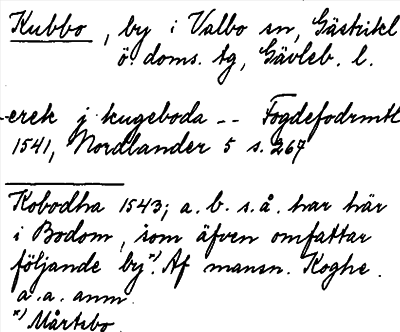 Kubbo, by i Valbo sn, Gästrikl
ö. doms. tg, Gävleb. l.
-erek j kugeboda -- Fogdefodrmtl
1541, Nordlander 5 s. 267
Kobodha 1543; a. b. s. å. har här
i Bodom, som äfven omfattar
följande by*). Af mansn. Koghe.
a. a. anm.
*) Mårtsbo.